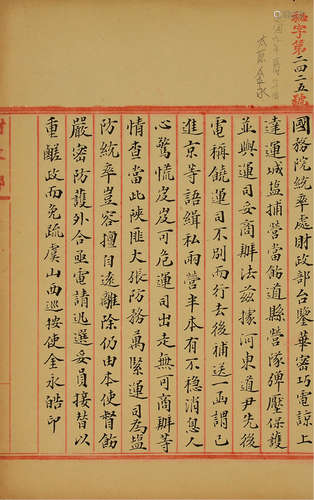 秘字第二四二五號
國務院統率處財政部台鑒華密巧電諒上
達運城鹽捕營當飭道縣營隊彈壓保護
並興運司妥商辦法茲據河東道尹先後
電稱饒運司不別而行去後補送一函謂已
進京等語緝私兩營半本有不穩消息人
心驚慌岌岌可危運司出走無可商辦等
情查當此陝匪大張防務萬緊運司為鹽
防統率豈容擅自遠離除仍由本使督飭
嚴密防護外合亟電請迅選妥員接替以
重醝政而免疏虞山西巡按使金永皓印